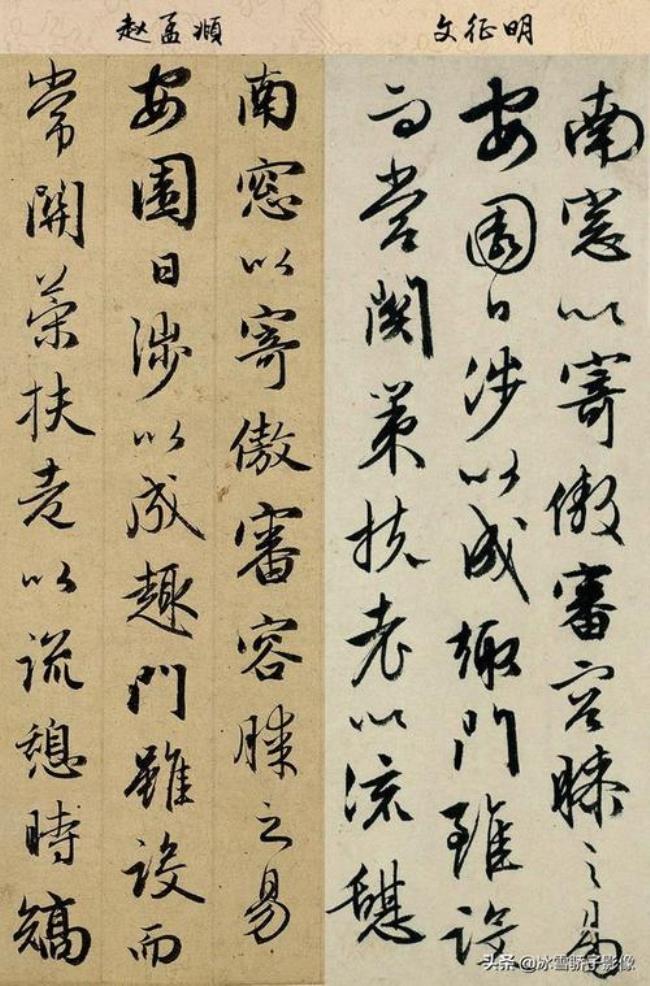 赵孟頫
南窓以寄傲審容膝之易
安園日涉以成趣門雖設而
常關策扶老以流憩時矯
文征明
南窓以寄傲審容膝之易
安園日涉以成趣門雖設
而常關策扶老以流憩
头条 @冰雪骄子影像